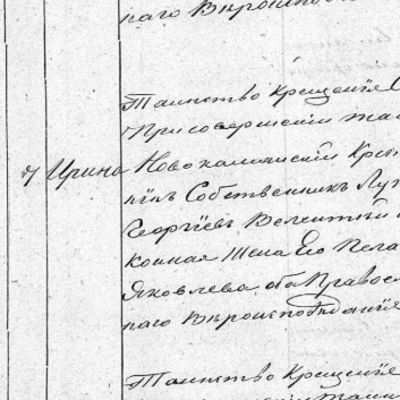 наго Вѣроисповѣ
Таинство Крещенія С
При совершеніи таи
7 Ирина Новокаманскій Крест
нинъ Собственникъ Лук
Георгіевъ Велентный
конная Жена Его Пела
Яковлева оба Правосл
наго Вѣроисповѣданія
Таинство Крещеніе